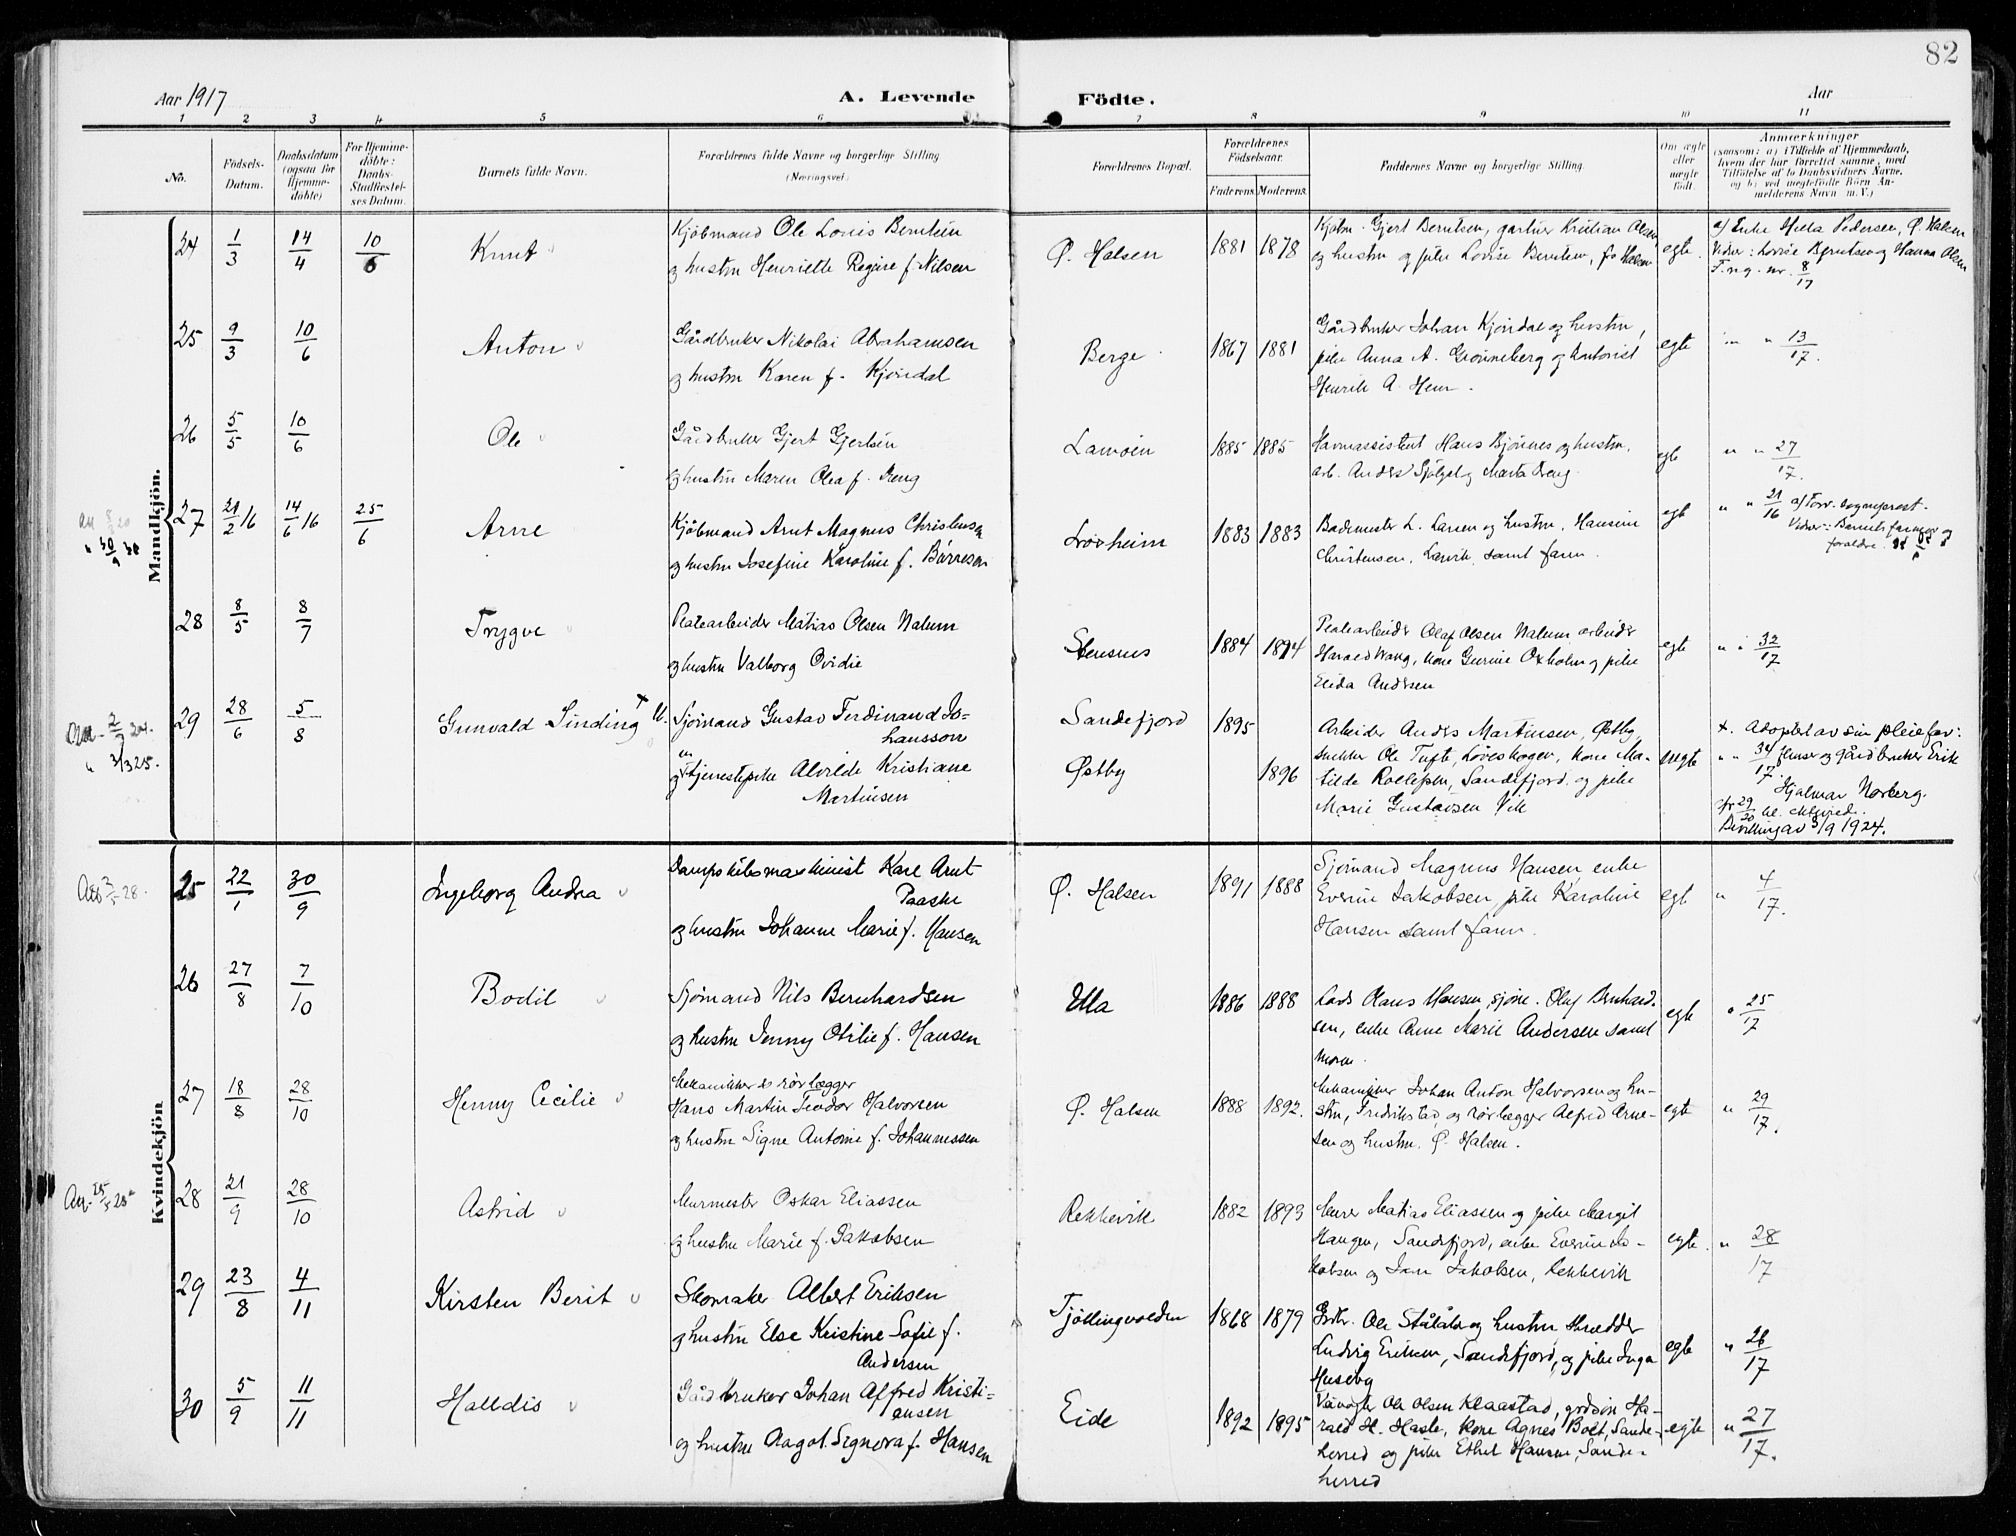 82
Aar 1917
A. Levende Födte.
Aar
1 2 3 4 5 6 7 8 9 10 11
No.
Födsels-Datum.
Daabsdatum (ogsaa for Hjemmedöbte)
For Hjemmedöbte: Daabs-Stadfæstelses Datum.
Barnets fulde Navn.
Forældrenes fulde Navne og borgerlige Stilling (Næringsvei)
Forældrenes Bopæl.
Forældrenes Födselsaar.
Faderens. Moderens.
Faddernes Navne og borgerlige Stilling.
Om ægte eller uægte födt.
Anmærkninger
(saasom: a) i Tilfælde af Hjemmedaab, hvem der har forrettet samme, med Tilföielse af to Daabsvidners Navne, og b) ved uægtefödte Börn Anmelderens Navn m. V.)
Mandkjön.
24 1/3 14/4 10/6 Knut
Kjøbmand Ole Louis Berntsen
og hustru Henriette Regine f. Nilsen
Ø. Halsen 1881 1878
Kjøbm. Gjert Berntsen, gartner Kristian Olsen
og hustru og pike Lovise Berntsen, Ø. Halsen
egte
a/ Enke Helea Pedersen, Ø. Halsen
Vidner: Lovise Berntsen og Hanna Olsen
F.reg. nr. 8/17
25 9/3 10/6 Anton
Gårdbruker Nikolai Abrahamsen
og hustru Karen f. Kjøndal
Berge 1867 1881
Gårdbruker Johan Kjøndal og hustru,
pike Anna A. Grønneberg og
Henrik A. Hem.
egte " " 13/17.
26 5/5 10/6 Ole
Gårdbruker Gjert Gjertsen
og hustru Maren Olea f. Reng
Lamøen 1885 1885
Havnassistent Hans Bjønnes og hustru,
arb. Anders og Marta Reng.
egte " " 27/17.
27 21/2 16 14/6 16 25/6 Arne
Kjøbmand Arnt Magnus Christensen
og hustru Josefine Karoline f. Børresen
1883 1883
Bademester L. Larsen og hustru, Hansine
Christensen, Larvik, samt faren.
egte " " 21/16 a/ Forr. sogneprest.
Vidner: Barnets farmor og
foreldre.
30/9 30
28 8/5 8/7 Trygve
Platearbeider Matias Olsen Nalum
og hustru Valborg Ovidie
Stensnes 1884 1894
Platearbeider Olaf Olsen Nalum arbeider
Harald Wang, kone Gurine Oxholm og pike
Elida Andersen
egte " " 32/17
29 28/6 5/8 Gunvald Sinding +
Sjømand Gustav Ferdinand Jo-
hansson
og tjenestepike Alvilde Kristiane
Martinsen
Sandefjord 1895
Østby 1896
Arbeider Anders Martinsen, Østby,
snekker Ole Tufte, Løveskogen, kone Ma-
tilde Rollefsen, Sandefjord, og pike
Marie Gustavsen Vik
uegte
+. Adoptert av sin pleiefar:
" " 34/17. Hmr og gårdbruker Erik
Hjalmar Norberg.
Bevilling av 3/9 1924.
3/3 25.
Kvindekjön
25 22/1 30/9 Ingeborg Andrea
Dampskibsmaskinist Karl Arnt
Paaske
og hustru Johanne Marie f. Hansen
Ø. Halsen 1891 1888
Sjømand Magnus Hansen, enke
Everine Jakobsen, pike Karoline
Hansen samt faren.
egte " 4/17.
26 27/8 7/10 Bodil
Sjømand Nils Bernhardsen
og hustru Jenny Otilie f. Hansen
Ula 1886 1888
Lods Olaus Hansen, sjøm. Oluf Bernhard-
sen, enke Anne Marie Andersen samt
moren.
egte " 25/17
27 18/8 28/10 Henny Cecilie
Mekanikker og rørlægger
Hans Martin Teodor Halvorsen
og hustru Signe Antonie f. Johannessen
Ø. Halsen 1888 1892.
Mekanikker Johan Anton Halvorsen og hu-
stru, Fredrikstad, og rørlægger Alfred Arne-
sen og hustru, Ø. Halsen.
egte " 29/17.
28 21/9 28/10 Astrid
Murmester Oskar Eliassen
og hustru Marie f. Jakobsen
Rekkevik 1882 1893
Murer Matias Eliassen og pike Margit
Haugen, Sandefjord, enke Everine Ja-
kobsen og Jan Jakobsen, Rekkevik
egte. " 28/17
29 23/8 4/11 Kirsten Berit
Skomaker Albert Eriksen
og hustru Else Kristine Sofie f.
Andersen
Tjøllingvolden 1868 1879
Grbr. Ole Ståløla og hustru skrædder
Ludvig Eriksen, Sandefjord, og pike Inga
Huseby
egte " 26/17
30 5/9 11/11 Halldis
Gårdbruker Johan Alfred Kristi-
ansen
og hustru Aagot Signora f. Hansen
Eide 1892 1895
Veivogter Ole Olsen Klaastad, grdsøn Ha-
rald H. Hasle, kone Agnes Bolt, Sande-
herred og pike Ethel Hansen, Sande-
herred
egte " 27/17.